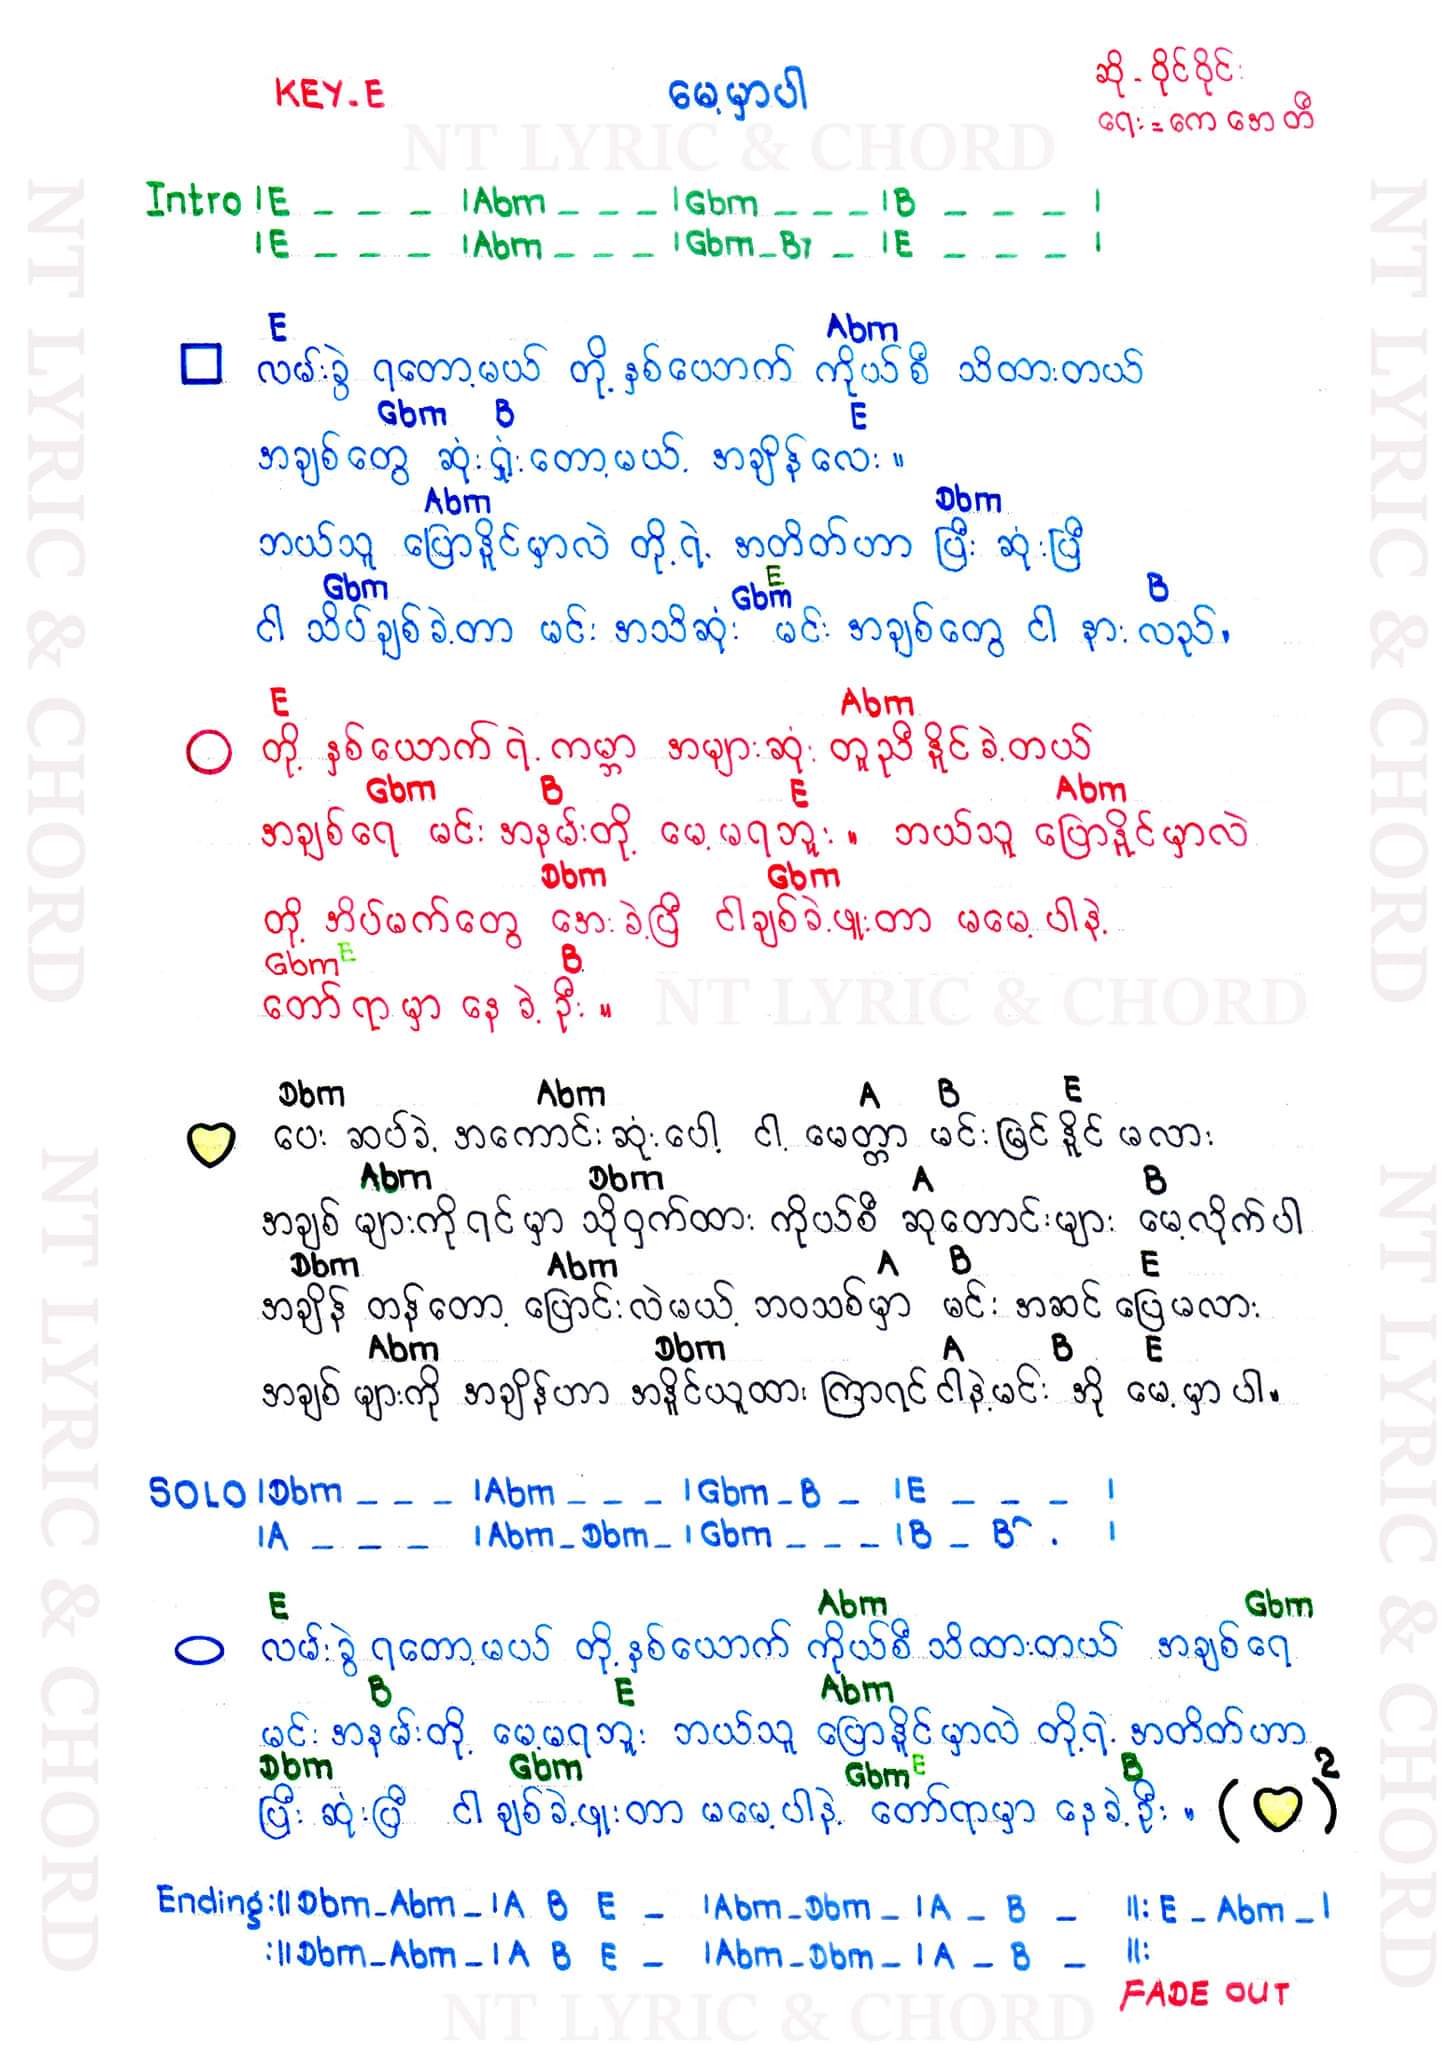 KEY-E
မေ့မှာပါ
ဆို - ဝိုင်ဝိုင်း
ရေး = ကေအေတီ
NT LYRIC & CHORD
Intro |E _ _ _ |Abm _ _ _ |Gbm _ _ _ |B _ _ _ |
|E _ _ _ |Abm _ _ _ |Gbm _ B7 _ |E _ _ _ |
E Abm
လမ်းခွဲ ရတော့မယ် တို့နှစ်ပေဘက် ကိုယ်စီ သိထားတယ်
Gbm B E
အချစ်တွေ ဆုံးရှုံးတော့မယ့် အချိန်လေး။
Abm Dbm
ဘယ်သူ ပြောနိူင်မှာလဲ တို့ရဲ့ အတိတ်ဟာ ပြီး ဆုံးပြီ
Gbm Gbm E B
ငါ သိပ်ချစ်ခဲ့တာ မင်း အသိဆုံး မင်း အချစ်တွေ ငါ နားလည်။
E Abm
တို့ နှစ်ယောက်ရဲ့ ကမ္ဘာ အများဆုံး တူညီနိူင်ခဲ့တယ်
Gbm B E Abm
အချစ်ရေ မင်း အနမ်းတို့ မေ့မရဘူး။ ဘယ်သူ ပြောနိူင်မှာလဲ
Dbm Gbm
တို့ အိပ်မက်တွေ အေးခဲ့ပြီ ငါချစ်ခဲ့ဖူးတာ မမေ့ပါနဲ့
Gbm E B
တော်ရာမှာ နေခဲ့ဦး။
NT LYRIC & CHORD
Dbm Abm A B E
ပေး ဆပ်ခဲ့ အကောင်းဆုံးပေါ့ ငါ့ မေတ္တာ မင်းမြင်နိူင်မလား
Abm Dbm A B
အချစ်များကို ရင်မှာ သိုဝှက်ထား ကိုယ်စီ ဆုတောင်းများ မေ့လိုက်ပါ
Dbm Abm A B E
အချိန် တန်တော့ ပြောင်းလဲမယ့် ဘဝသစ်မှာ မင်း အဆင်ပြေမလား
Abm Dbm A B E
အချစ်များကို အချိန်ဟာ အနိူင်ယူထား ကြာရင်ငါနဲ့မင်း အို မေ့မှာပါ။
SOLO |Dbm _ _ _ |Abm _ _ _ |Gbm _ B _ |E _ _ _ |
|A _ _ _ |Abm _ Dbm _ |Gbm _ _ _ |B _ B^ . |
E Abm Gbm
လမ်းခွဲ ရတော့မယ် တို့နှစ်ယောက် ကိုယ်စီ သိထားတယ် အချစ်ရေ
B E Abm
မင်း အနမ်းတို့ မေ့မရဘူး ဘယ်သူ ပြောနိူင်မှာလဲ တို့ရဲ့ အတိတ်ဟာ
Dbm Gbm Gbm E B
ပြီး ဆုံးပြီ ငါ ချစ်ခဲ့ဖူးတာ မမေ့ပါနဲ့ တော်ရာမှာ နေခဲ့ဦး။ ( )2
Ending :||Dbm _ Abm _ |A B E _ |Abm _ Dbm _ |A _ B _ ||: E _ Abm _ |
:||Dbm _ Abm _ |A B E _ |Abm _ Dbm _ |A _ B _ ||:
FADE OUT
NT LYRIC & CHORD
NT LYRIC & CHORD
NT LYRIC & CHORD
NT LYRIC & CHORD
NT LYRIC & CHORD